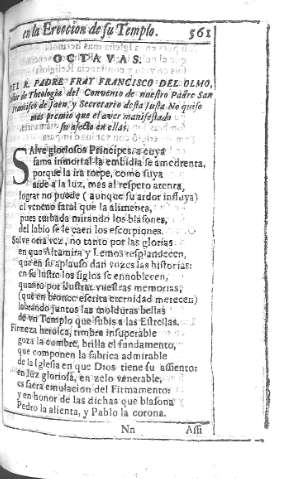 en la Ereccion de su Templo. 561
OCTAVAS.
DEL R. PADRE FRAY FRANCISCO DEL OLMO,
de Theologia del Convento de nuestro Padre San
Francisco de Jaen, y Secretario desta Justa No quiso
mas premio que el aver manifestado
su afecto en ellas.
Salve gloriosos Principes, a cuya
fama inmortal la embidia se amedrenta,
porque la ira torpe, como suya
arde a la luz, mas al respeto atenta,
lograr no puede (aunque su ardor influya)
el veneno fatal que la alimenta,
pues turbada mirando los blasones,
del labio se le caen los escorpiones.
Salve otra vez, no tanto por las glorias
en que Altamira y Lemos resplandecen,
que en su aplauso dan vozes las historias:
en su lustre los siglos se ennoblecen,
quanto por ilustrar vuestras memorias;
(que en bronce escrita eternidad merecen)
labrando juntas las molduras bellas
de un Templo que subis a las Estrellas.
Firmeza heroica, timbre insuperable
goza la cumbre, brilla el fundamento,
que componen la fabrica admirable
de la Iglesia en que Dios tiene su assiento
en luz gloriosa, en zelo venerable,
es fuera emulacion del Firmamento
y en honor de las dichas que blasona
Pedro la alienta, y Pablo la corona.
Nn Assi